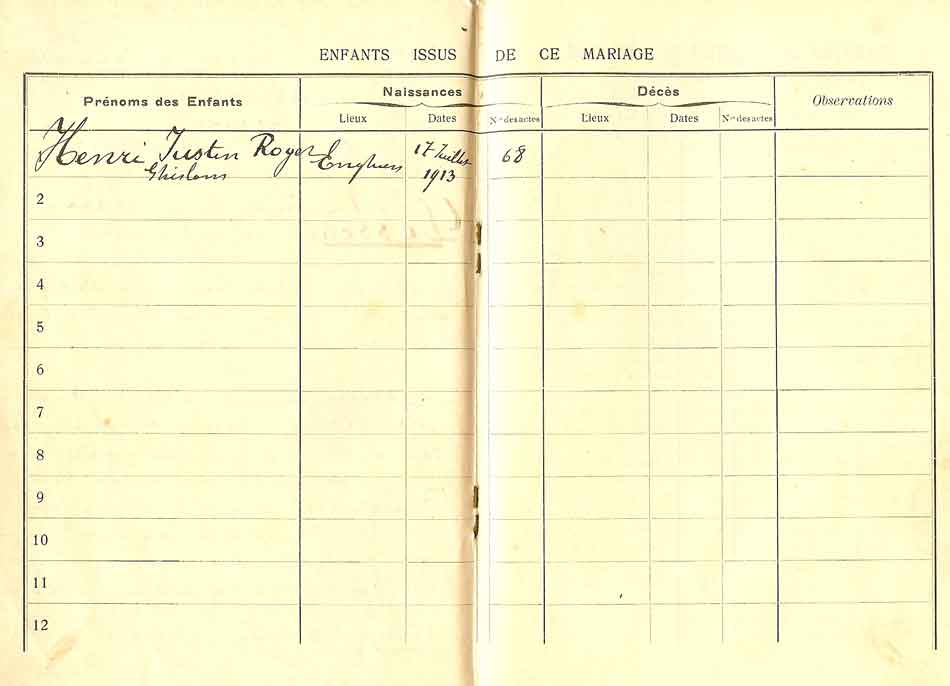 ENFANTS ISSUS DE CE MARIAGE
Prénoms des Enfants Naissances Décès Observations
Lieux Dates Nos des actes Lieux Dates Nos des actes
Henri Justin Roger Enghien 17 Juillet 68
Ghislain 1913
2
3
4
5
6
7
8
9
10
11
12